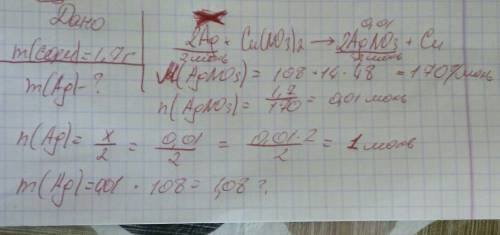 Дано
m(соли)=1,7г
m(Ag)-?
0,01
2Ag + Cu(NO3)2 → 2AgNO3 + Cu
2моль 2моль
M(AgNO3) = 108·14·48 = 170г/моль
n(AgNO3) = 1,7/170 = 0,01 моль
n(Ag) = x/2 = 0,01/2 = 0,01·2/2 = 1 моль
m(Ag)=0,01 · 108 = 1,08 г.